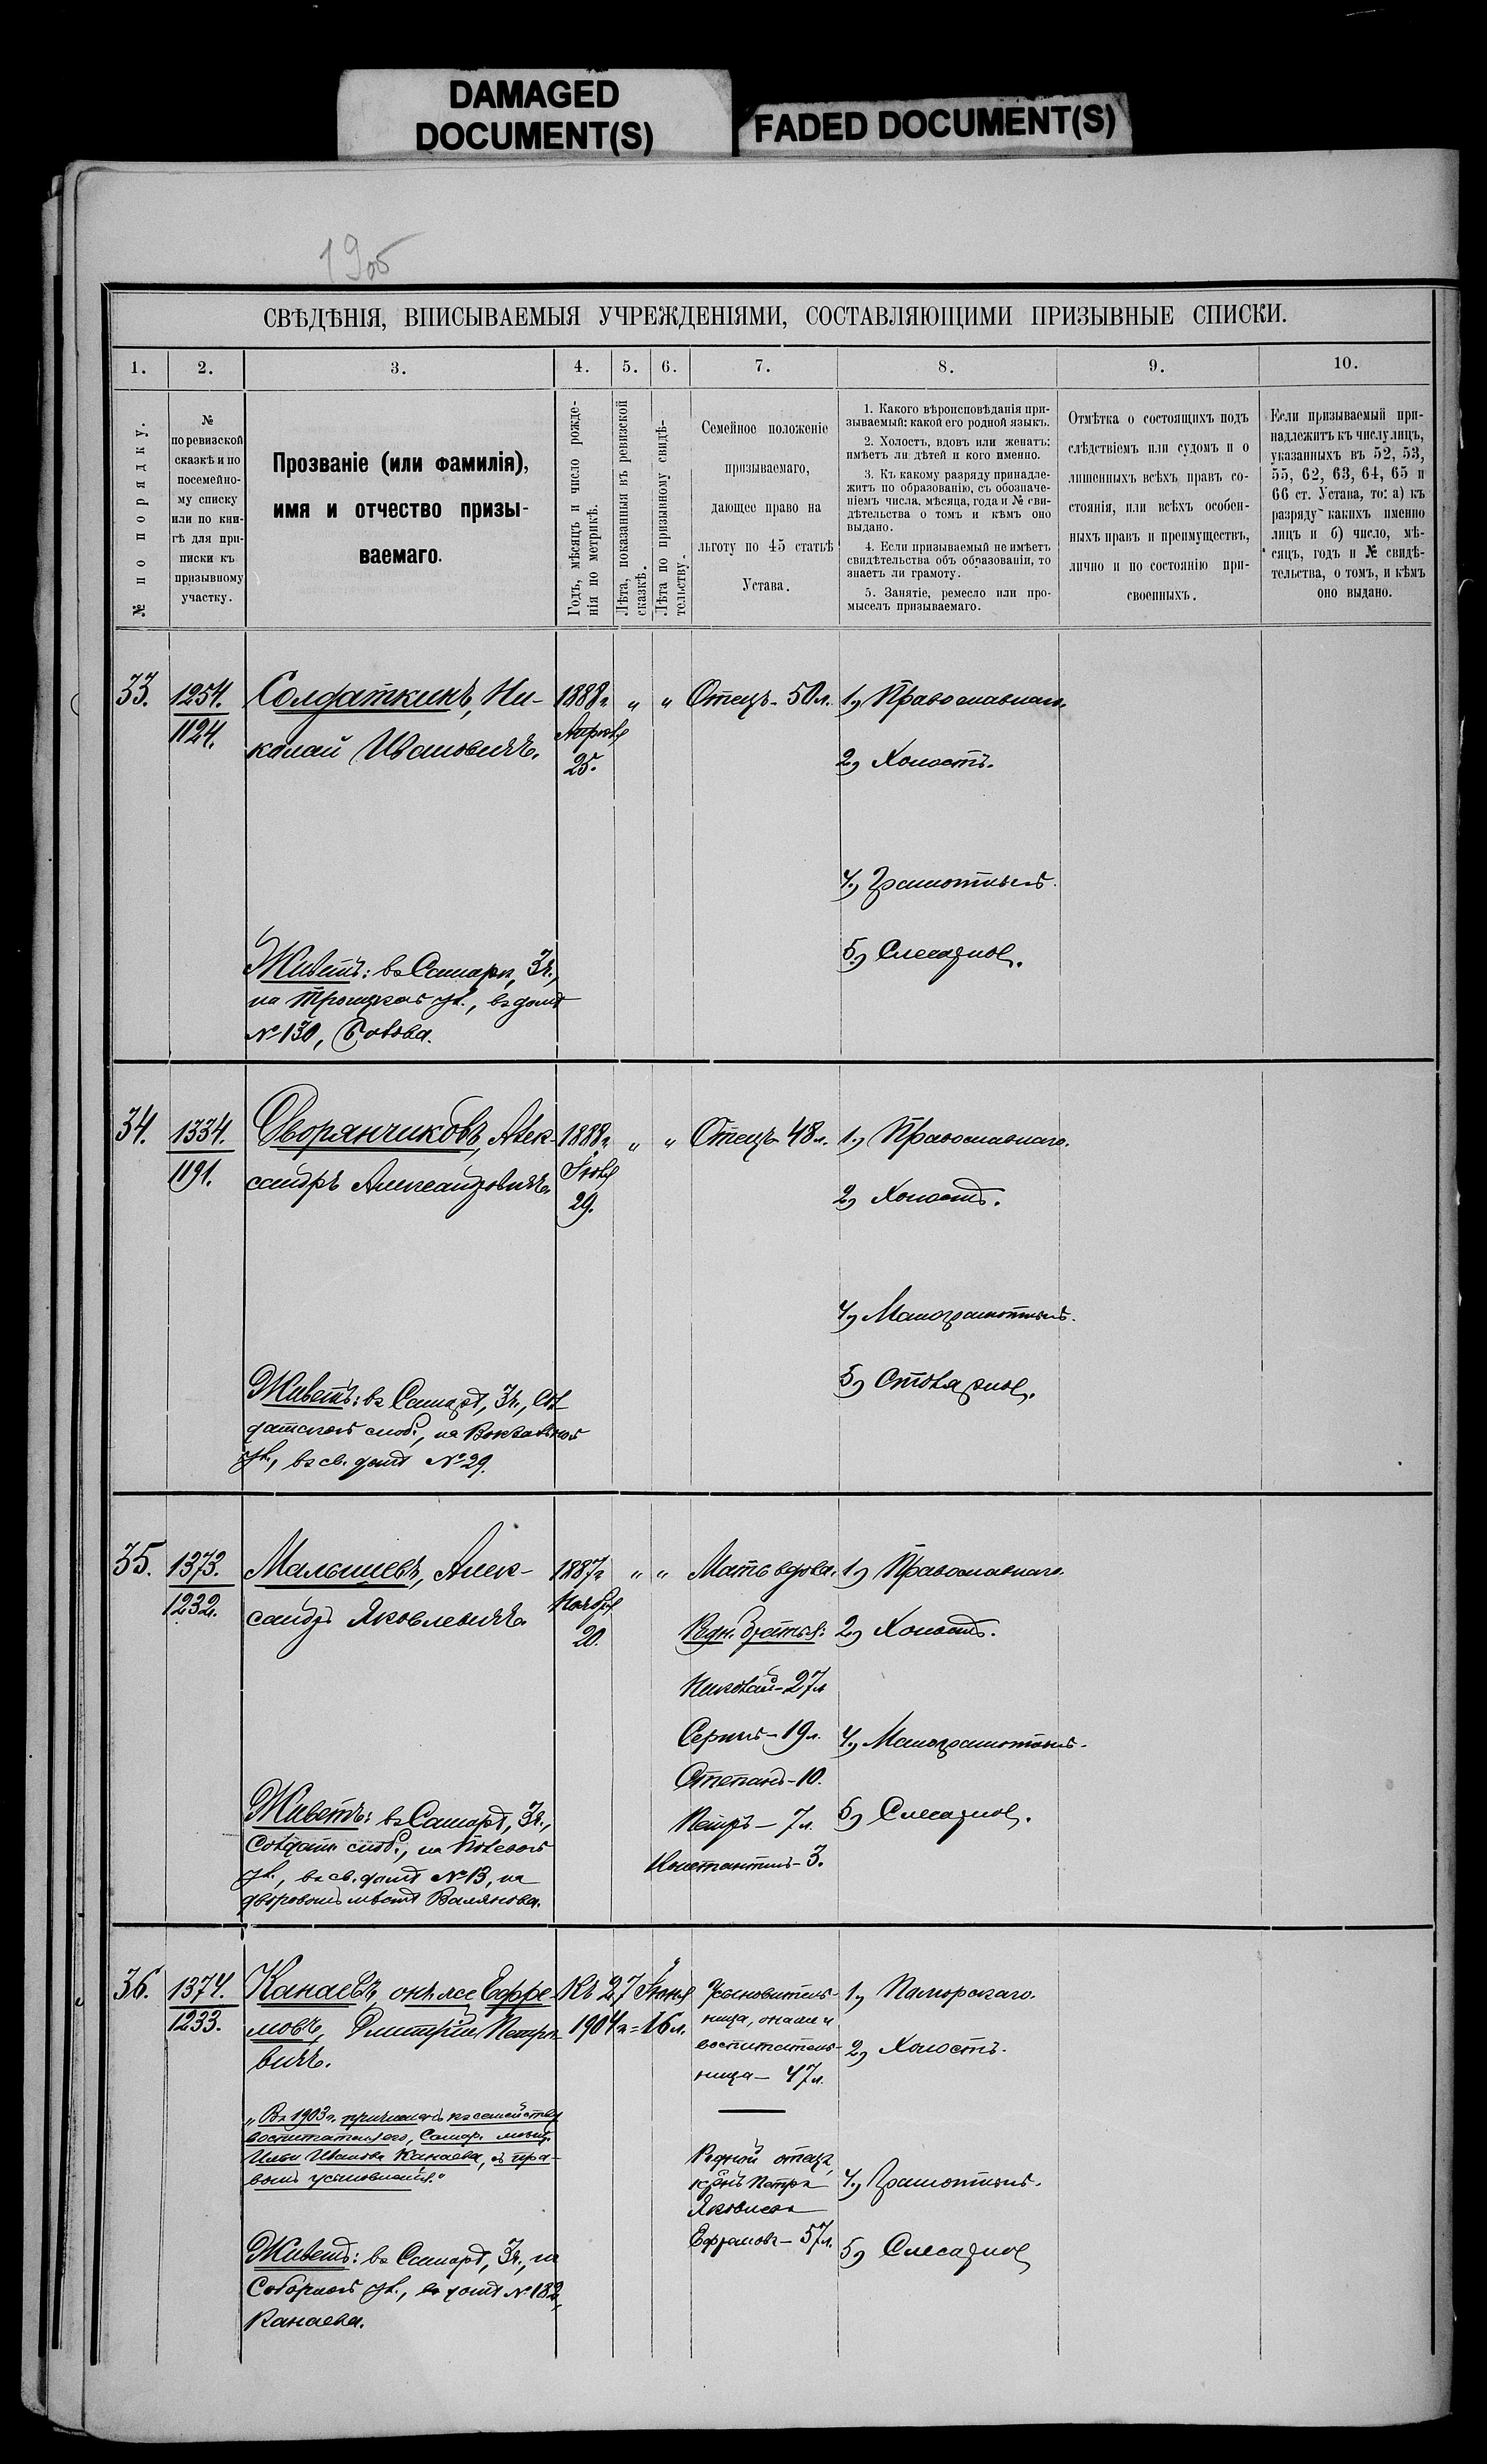 DAMAGED
DOCUMENT(S)
FADED DOCUMENT(S)
1905
СВѢДѢНІЯ, ВПИСЫВАЕМЫЯ УЧРЕЖДЕНІЯМИ, СОСТАВЛЯЮЩИМИ ПРИЗЫВНЫЕ СПИСКИ.
1. 2. 3. 4. 5. 6. 7. 8. 9. 10.
№ по порядку.
№
по ревизской
сказкѣ и по
посемейно-
му списку
или по кни-
гѣ для при-
писки къ
призывному
участку.
Прозваніе (или фамилія),
имя и отчество призы-
ваемаго.
Годъ, мѣсяцъ и число рожде-
нія по метрикѣ.
Лѣта, показанныя въ ревизской
сказкѣ.
Лѣта по призывному свидѣ-
тельству.
Семейное положеніе
призываемаго,
дающее право на
льготу по 45 статьѣ
Устава.
1. Какого вѣроисповѣданія при-
зываемый: какой его родной языкъ.
2. Холостъ, вдовъ или женатъ:
имѣетъ ли дѣтей и кого именно.
3. Къ какому разряду принадле-
житъ по образованію, съ обозначе-
ніемъ числа, мѣсяца, года и № сви-
дѣтельства о томъ и кѣмъ оно
выдано.
4. Если призываемый не имѣетъ
свидѣтельства объ образованіи, то
знаетъ ли грамоту.
5. Занятіе, ремесло или про-
мыселъ призываемаго.
Отмѣтка о состоящихъ подъ
слѣдствіемъ или судомъ и о
лишенныхъ всѣхъ правъ со-
стоянія, или всѣхъ особен-
ныхъ правъ и преимуществъ,
лично и по состоянію при-
своенныхъ.
Если призываемый при-
надлежитъ къ числу лицъ,
указанныхъ въ 52, 53,
55, 62, 63, 64, 65 и
66 ст. Устава, то: а) къ
разряду какихъ именно
лицъ и б) число, мѣ-
сяцъ, годъ и № свидѣ-
тельства, о томъ, и кѣмъ
оно выдано.
33.
1254.
1124.
Солдаткинъ, Ни-
колай Ивановичъ.
Живетъ: въ Самарѣ, 3ч.,
на Троицкой ул., въ домѣ
№ 130,
1888г.
Апрѣля
25.
" "
Отецъ - 50л.
1, Православнаго.
2, Холостъ.
4, Грамотный.
5, Слесарное.
34.
1334.
1191.
Дворянчиковъ, Алек-
сандръ Александровичъ
Живетъ: въ Самарѣ, 3ч., Сол
датской слоб., на Вокзальной
ул., въ св. домѣ № 29.
1888г.
Іюля
29.
" "
Отецъ 48л.
1, Православнаго.
2, Холостъ.
4, Малограмотный.
5, Столярное.
35.
1373.
1232.
Малышевъ, Алек-
сандръ Яковлевичъ.
Живетъ: въ Самарѣ, 3ч.,
Солдатк. слоб., на Полевой
ул., въ св. домѣ № 13, на
дворовомъ мѣстѣ Валякова.
1887г.
Ноября
20.
" "
Мать вдова.
Родн. братья:
Николай - 27л
Сергѣй - 19л.
Степанъ - 10.
Петръ - 7л.
Константинъ - 3.
1, Православнаго.
2, Холостъ.
4, Малограмотный.
5, Слесарное.
36.
1374.
1233.
Канаевъ, онъ же Ефре-
мовъ, Дмитрій Петро-
вичъ.
"Въ 1903г. причисленъ къ семейству
воспитателя его, Самар. мѣщ.
Ильи Иванова Канаева, съ пра-
вомъ усыновленія."
Живетъ: въ Самарѣ, 3ч., на
Соборной ул., въ домѣ № 182,
Канаева.
Къ 27 Іюня
1904г. = 16л.
Усыновитель-
ница, она же и
воспитатель-
ница - 47л.
Родной отецъ,
Петръ
Яковлевъ
Ефремовъ - 57л.
1, Поморскаго.
2, Холостъ.
4, Грамотный.
5, Слесарное